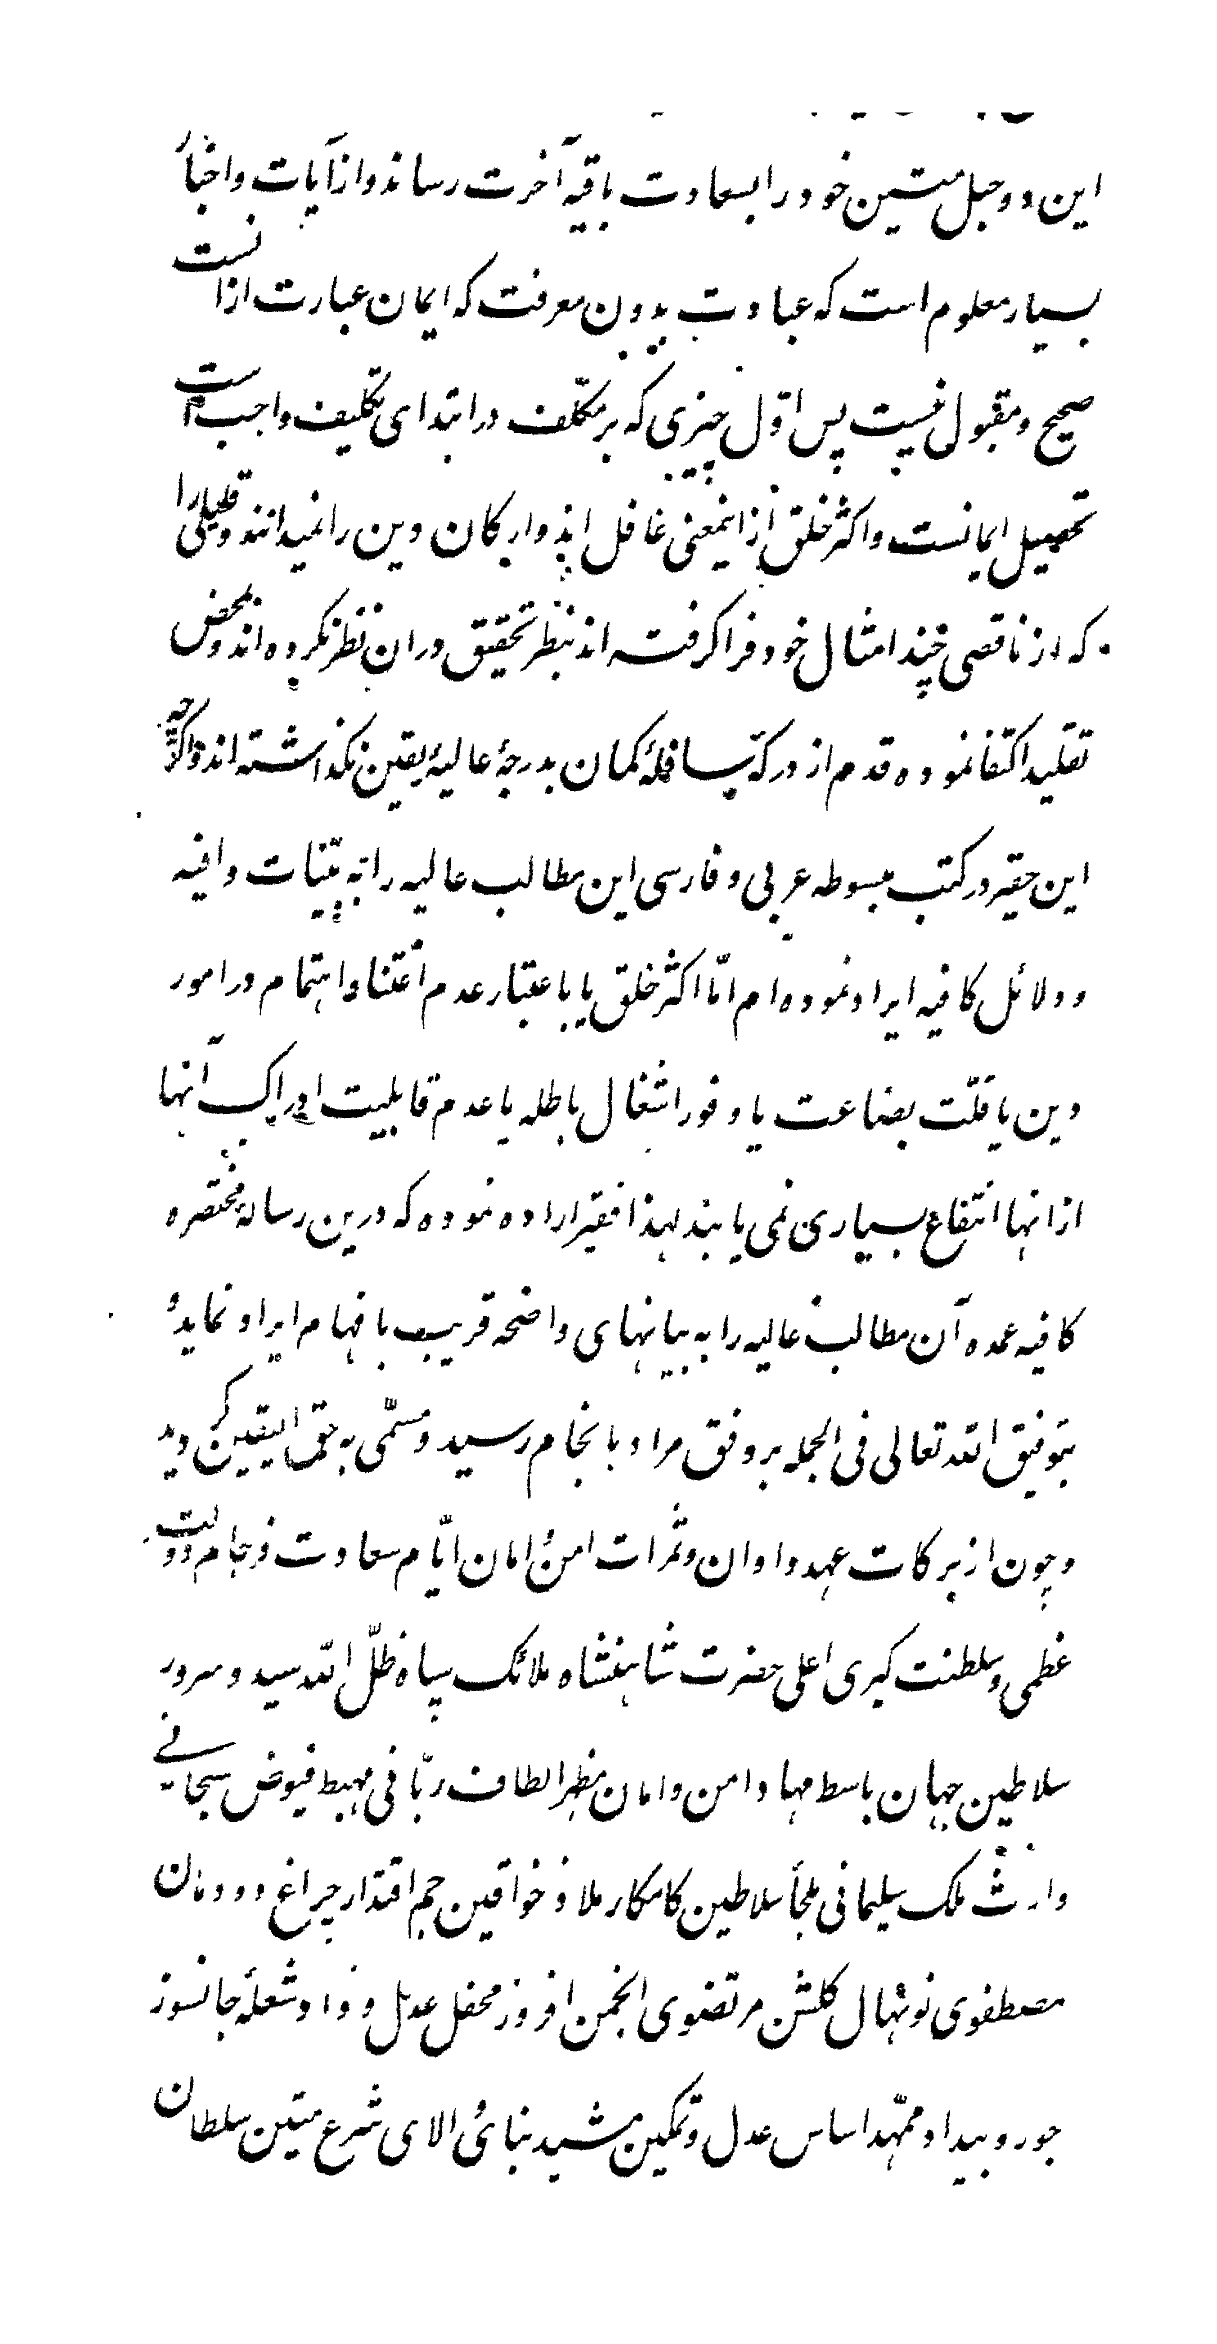 این دو حبل متین خود را بسعادت باقیهٔ آخرت رساند و از آیات و اخبار
بسیار معلوم است که عبادت بدون معرفت که ایمان عبارت ازانست
صحیح و مقبول نیست پس اوّل چیزی که بر مکلّف در ابتدای تکلیف واجب است
تحصیل ایمانست و اکثر خلق ازاینمعنی غافل اند و ارکان دین را نمیدانند و قلیلی را
که از ناقصی چند امثال خود فرا گرفته اند بنظر تحقیق دران نظر نکرده اند و بمحض
تقلید اکتفا نموده قدم از درکهٔ سافلهٔ کمان بدرجهٔ عالیهٔ یقین نکذاشته اند و اکرچه
این حقیر در کتب مبسوطه عربی و فارسی این مطالب عالیه را به بیّنات وافیه
و دلائل کافیه ایراد نموده ام امّا اکثر خلق یا باعتبار عدم اعتنا و اهتمام در امور
دین یا قلّت بضاعت یا وفور اشغال باطله یا عدم قابلیت ادراک آنها
ازانها انتفاع بسیاری نمی یابند لهذا فقیر اراده نموده که درین رسالهٔ مختصره
کافیه عمده آن مطالب عالیه را به بیانهای واضحه قریب بافهام ایراد نماید و
بتوفیق الله تعالی فی الجمله بر وفق مراد بانجام رسید و مسمّی به حق الیقین کردید
و چون از برکات عهد و اوان و ثمرات امن و امان ایّام سعادت فرجام دولت
عظمی و سلطنت کبری اعلی حضرت شاهنشاه ملائک سپاه ظلّ الله سید و سرور
سلاطین جهان باسط مهاد امن و امان مظهر الطاف ربّانی مهبط فیوض سبحانی
وارث ملک سلیمانی ملجأ سلاطین کامکار ملاذ خواقین جم اقتدار چراغ دودمان
مصطفوی نونهال کلشن مرتضوی انجمن افروز محفل عدل و داد شعلهٔ جانسوز
جور و بیداد ممهّد اساس عدل و تمکین مشید بنای والای شرع متین سلطان